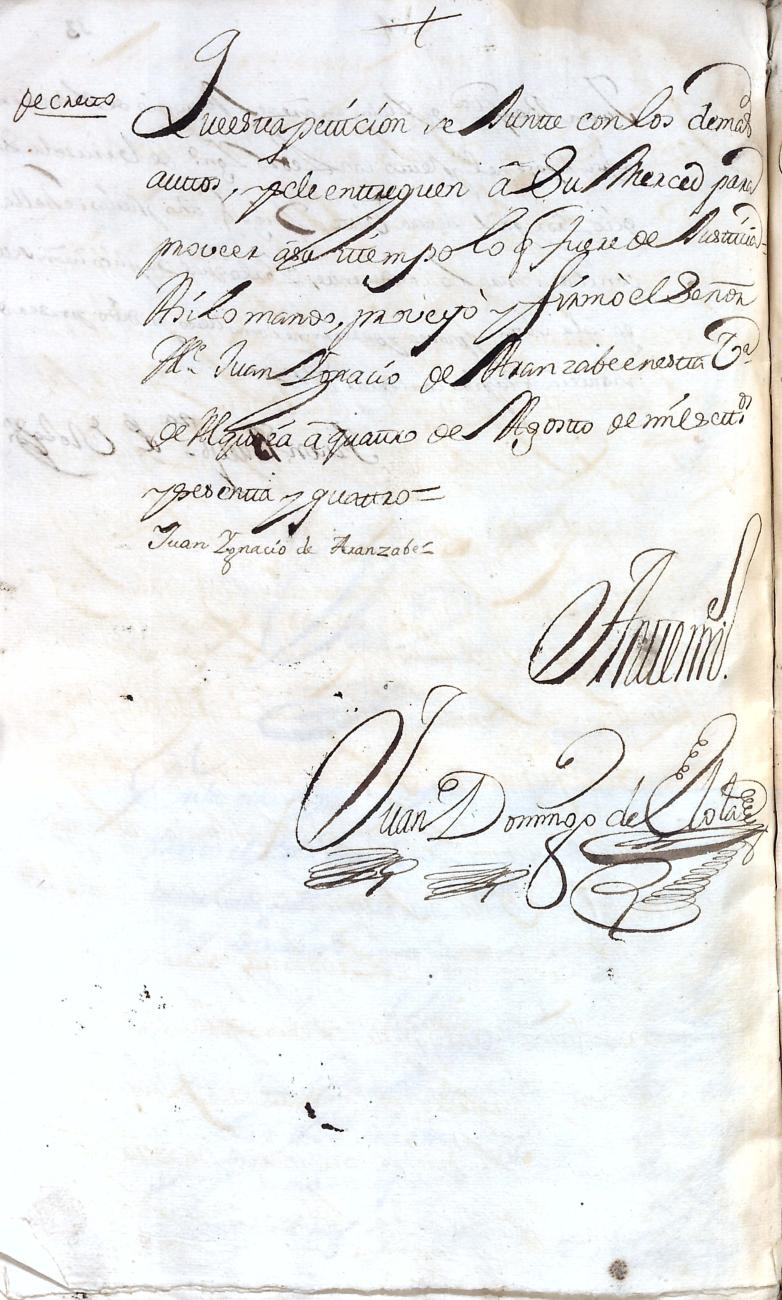 Decreto
Que esta petición, se Junte con los demas
auttos, y se le entreguen â Su Merced para
proveer âsu ttiempo lo q fuere de Justticia=
Asi lo mando, proveyò y firmò el Señor
Alc. Juan Ygnacio de Aranzabe en estta Vª
de Alquiza â quattro de Agosto de mil settos
y sesentta y quattro=
Juan Ygnacio de Aranzabe
Antemi.
Juan Domingo de